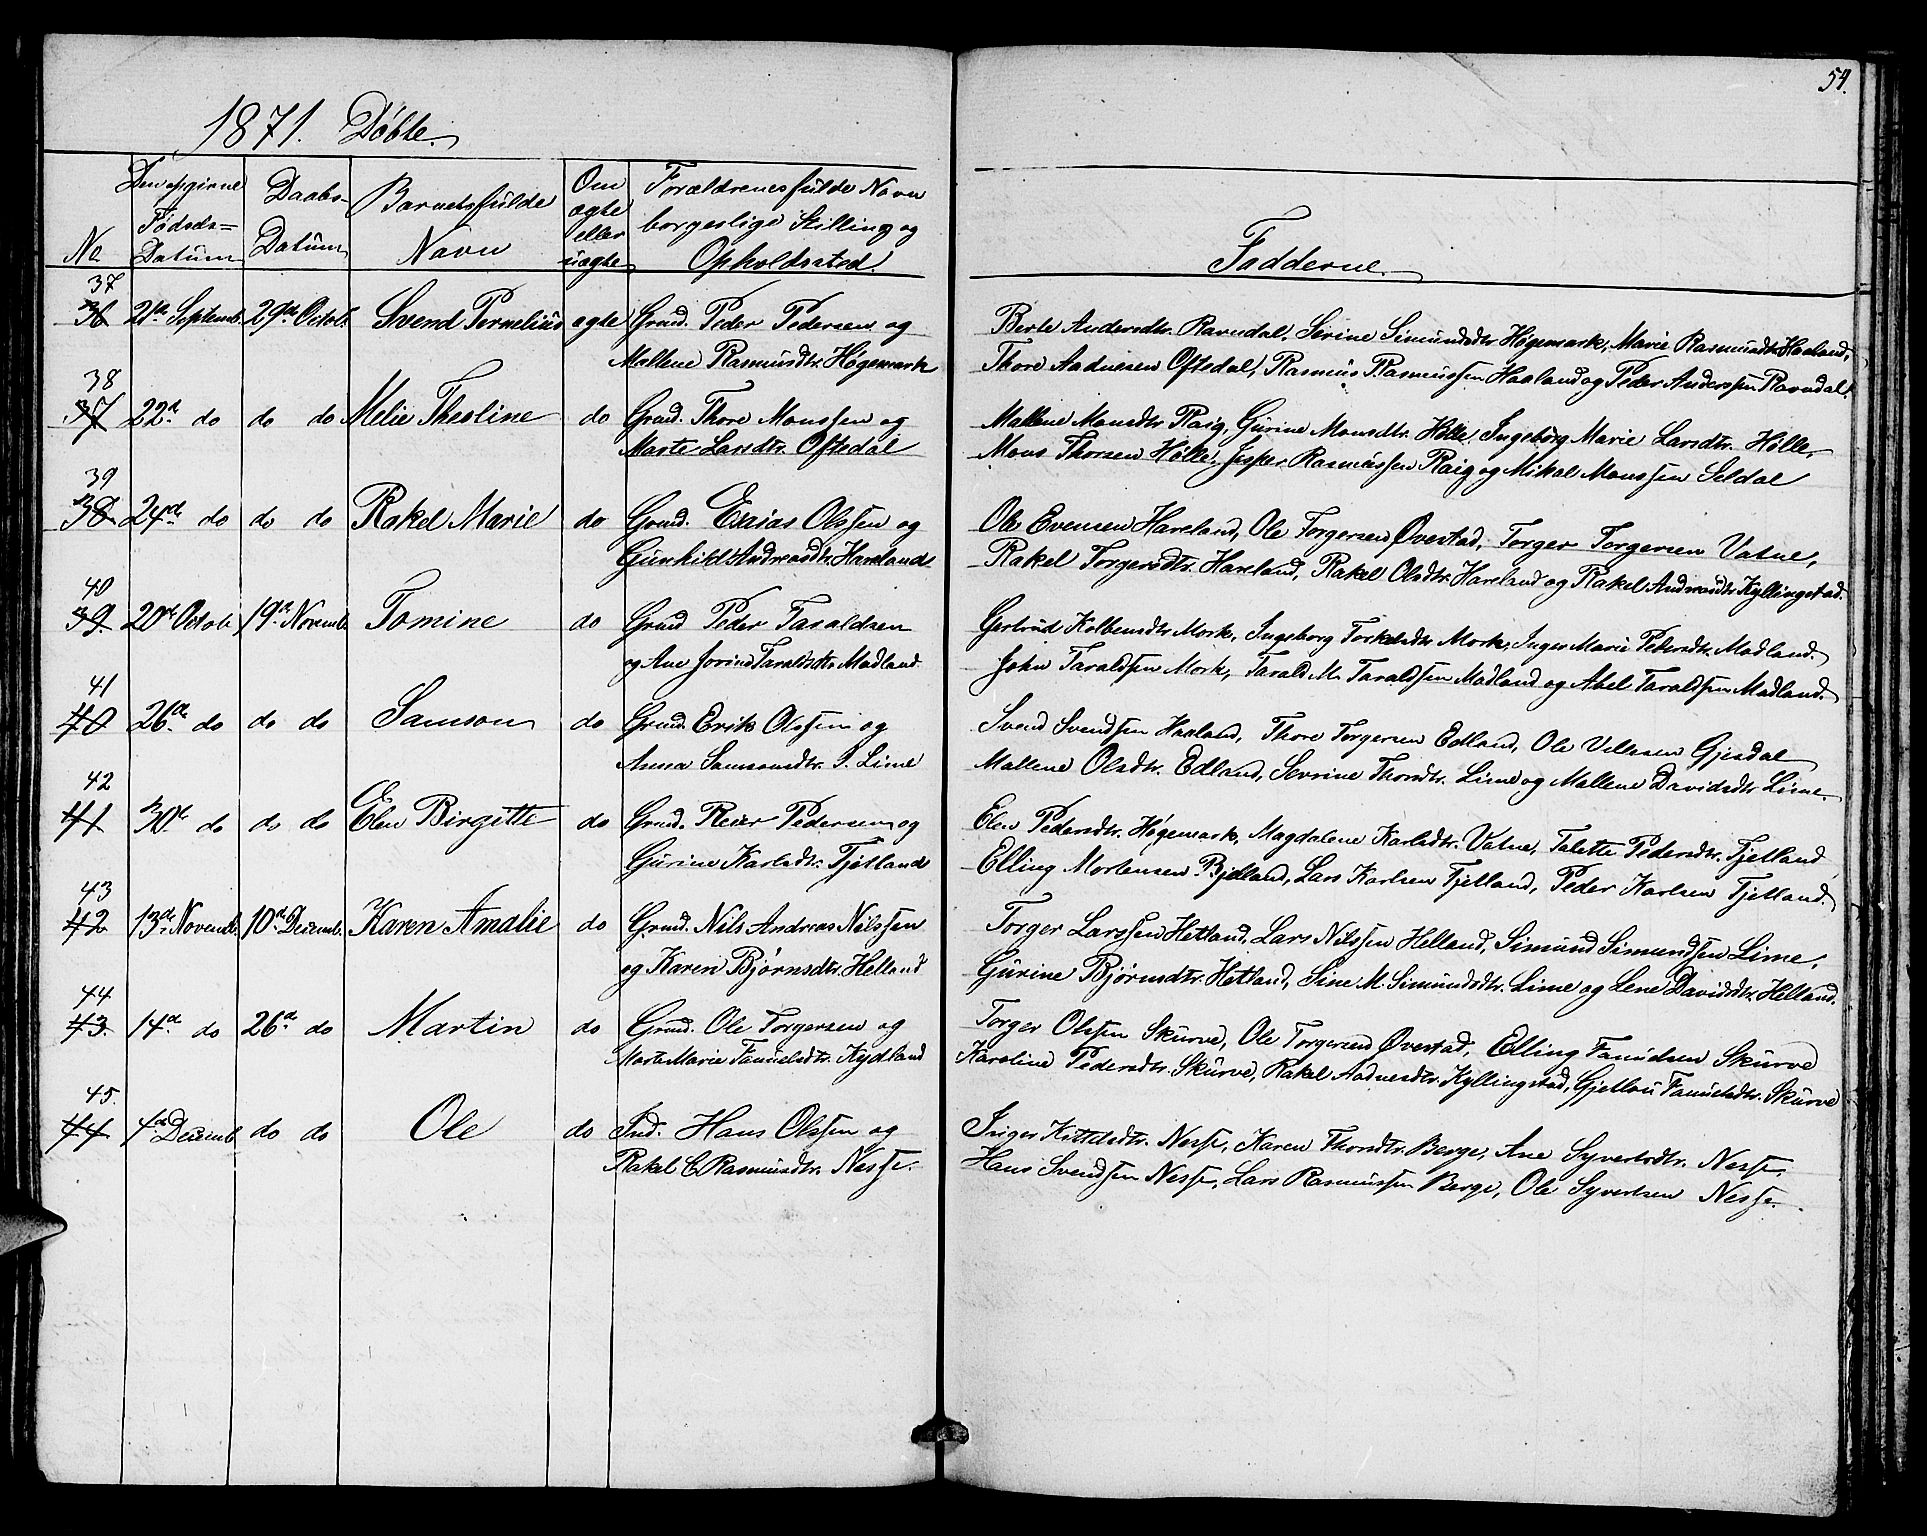 54.
1871. Døbte.
No
Den opgivne Fødsels=Datum
Daabs-Datum
Barnets fulde Navn
Om ægte eller uægte
Forældrenes fulde Navn borgerlige Stilling og Opholdssted.
Fadderne.
37
36 21de Septemb. 29de Octob. Svend Pernelius ægte Grmd. Peder Pedersen og
Mallene Rasmusdtr. Høgemark
Berte Andersdtr. Ravndal, Serine Simundsdtr. Høgemark, Marie Rasmusdtr. Haaland,
Thore Aadnesen Oftedal, Rasmus Rasmussen Haaland og Peder Anderssen Ravndal.
38
37 22de do do do Melie Theoline do Grmd. Thore Monssen og
Marte Larsdtr. Oftedal
Mallene Monsdtr. Raig, Gurine Monsdtr. Hølle, Ingeborg Marie Larsdtr. Hølle,
Mons Thorsen Hølle, Jesper Rasmussen Raig og Mikal Monssen Seldal
39
38 24de do do do Rakel Marie do Grmd. Esaias Olssen og
Gunhild Andreasdtr. Haveland
Ole Evensen Haveland, Ole Torgersen Øvestad, Torger Torgersen Vatne,
Rakel Torgersdtr. Haveland, Rakel Olsdtr. Haveland og Rakel Andreasdtr. Kyllingstad.
40
39. 20de Octob. 19de Novemb. Tomine do Grmd Peder Taraldsen
og Ane Jorine Taraldsdtr. Madland
Gertrud Kolbensdtr. Mork, Ingeborg Torkelsdtr. Mork, Inger Marie Pedersdtr. Madland.
John Taraldsen Mork, Tarald M. Taraldsen Madland og Abel Taraldsen Madland.
41
40 26de do do do Samson do Grmd. Erik Olssen og
Anna Samsonsdtr. I. Lime
Svend Svendsen Haaland, Thore Torgersen Edland, Ole Villesen Gjesdal
Mallene Olsdtr. Edland, Sevrine Thorsdtr. Lime og Mallene Davidsdtr. Lime.
42
41 30de do do do Elen Birgitte do Grmd. Reier Pedersen og
Gurine Karlsdtr. Fjetland
Elen Pedersdtr. Høgemark, Magdalene Karlsdtr. Vatne, Talette Pedersdtr. Fjetland
Elling Mortensen Bjelland, Lars Karlsen Fjetland, Peder Karlsen Fjetland.
43
42 13de Novemb. 10de Decemb. Karen Amalie do Grmd. Nils Andreas Nilssen
og Karen Bjørnsdtr. Helland
Torger Larssen Hetland, Lars Nilssen Helland, Simund Simundsen Lime,
Gurine Bjørnsdtr. Hetland, Sine M. Simundsdtr. Lime og Lene Davidsdtr. Helland.
44
43. 14de do 26de do Martin do Grmd. Ole Torgersen og
Marte Marie Fanuelsdtr. Kydland
Torger Olssen Skurve, Ole Torgersen Øvestad, Elling Fanuelsen Skurve
Karoline Pedersdtr. Skurve, Rakel Aadnesdtr. Kyllingstad, Gjetlou Fanuelsdtr. Skurve
45.
44 4de Decemb. do do Ole do Ind. Hans Olssen og
Rakel C. Rasmusdtr. Nesse.
Inger Kittelsdtr. Nesse, Karen Thorsdtr. Berge, Ane Syvertsdtr. Nesse,
Hans Svendsen Nesse, Lars Rasmussen Berge, Ole Syvertsen Nesse.